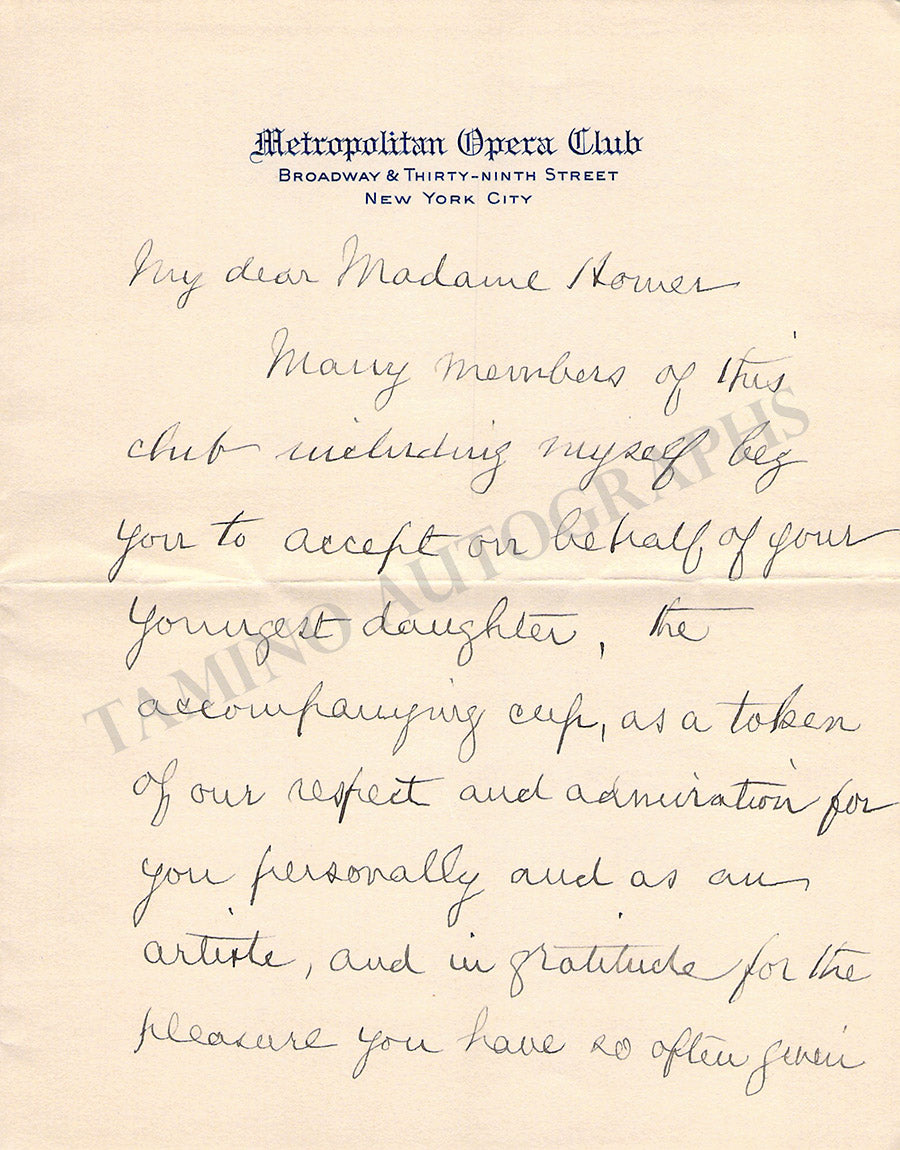 Metropolitan Opera Club
BROADWAY & THIRTY-NINTH STREET
NEW YORK CITY
My dear Madame Homer
Many members of this
club including myself beg
you to accept on behalf of your
youngest daughter, the
accompanying cup, as a token
of our respect and admiration for
you personally and as an
artiste, and in gratitude for the
pleasure you have so often given
TAMINO AUTOGRAPHS